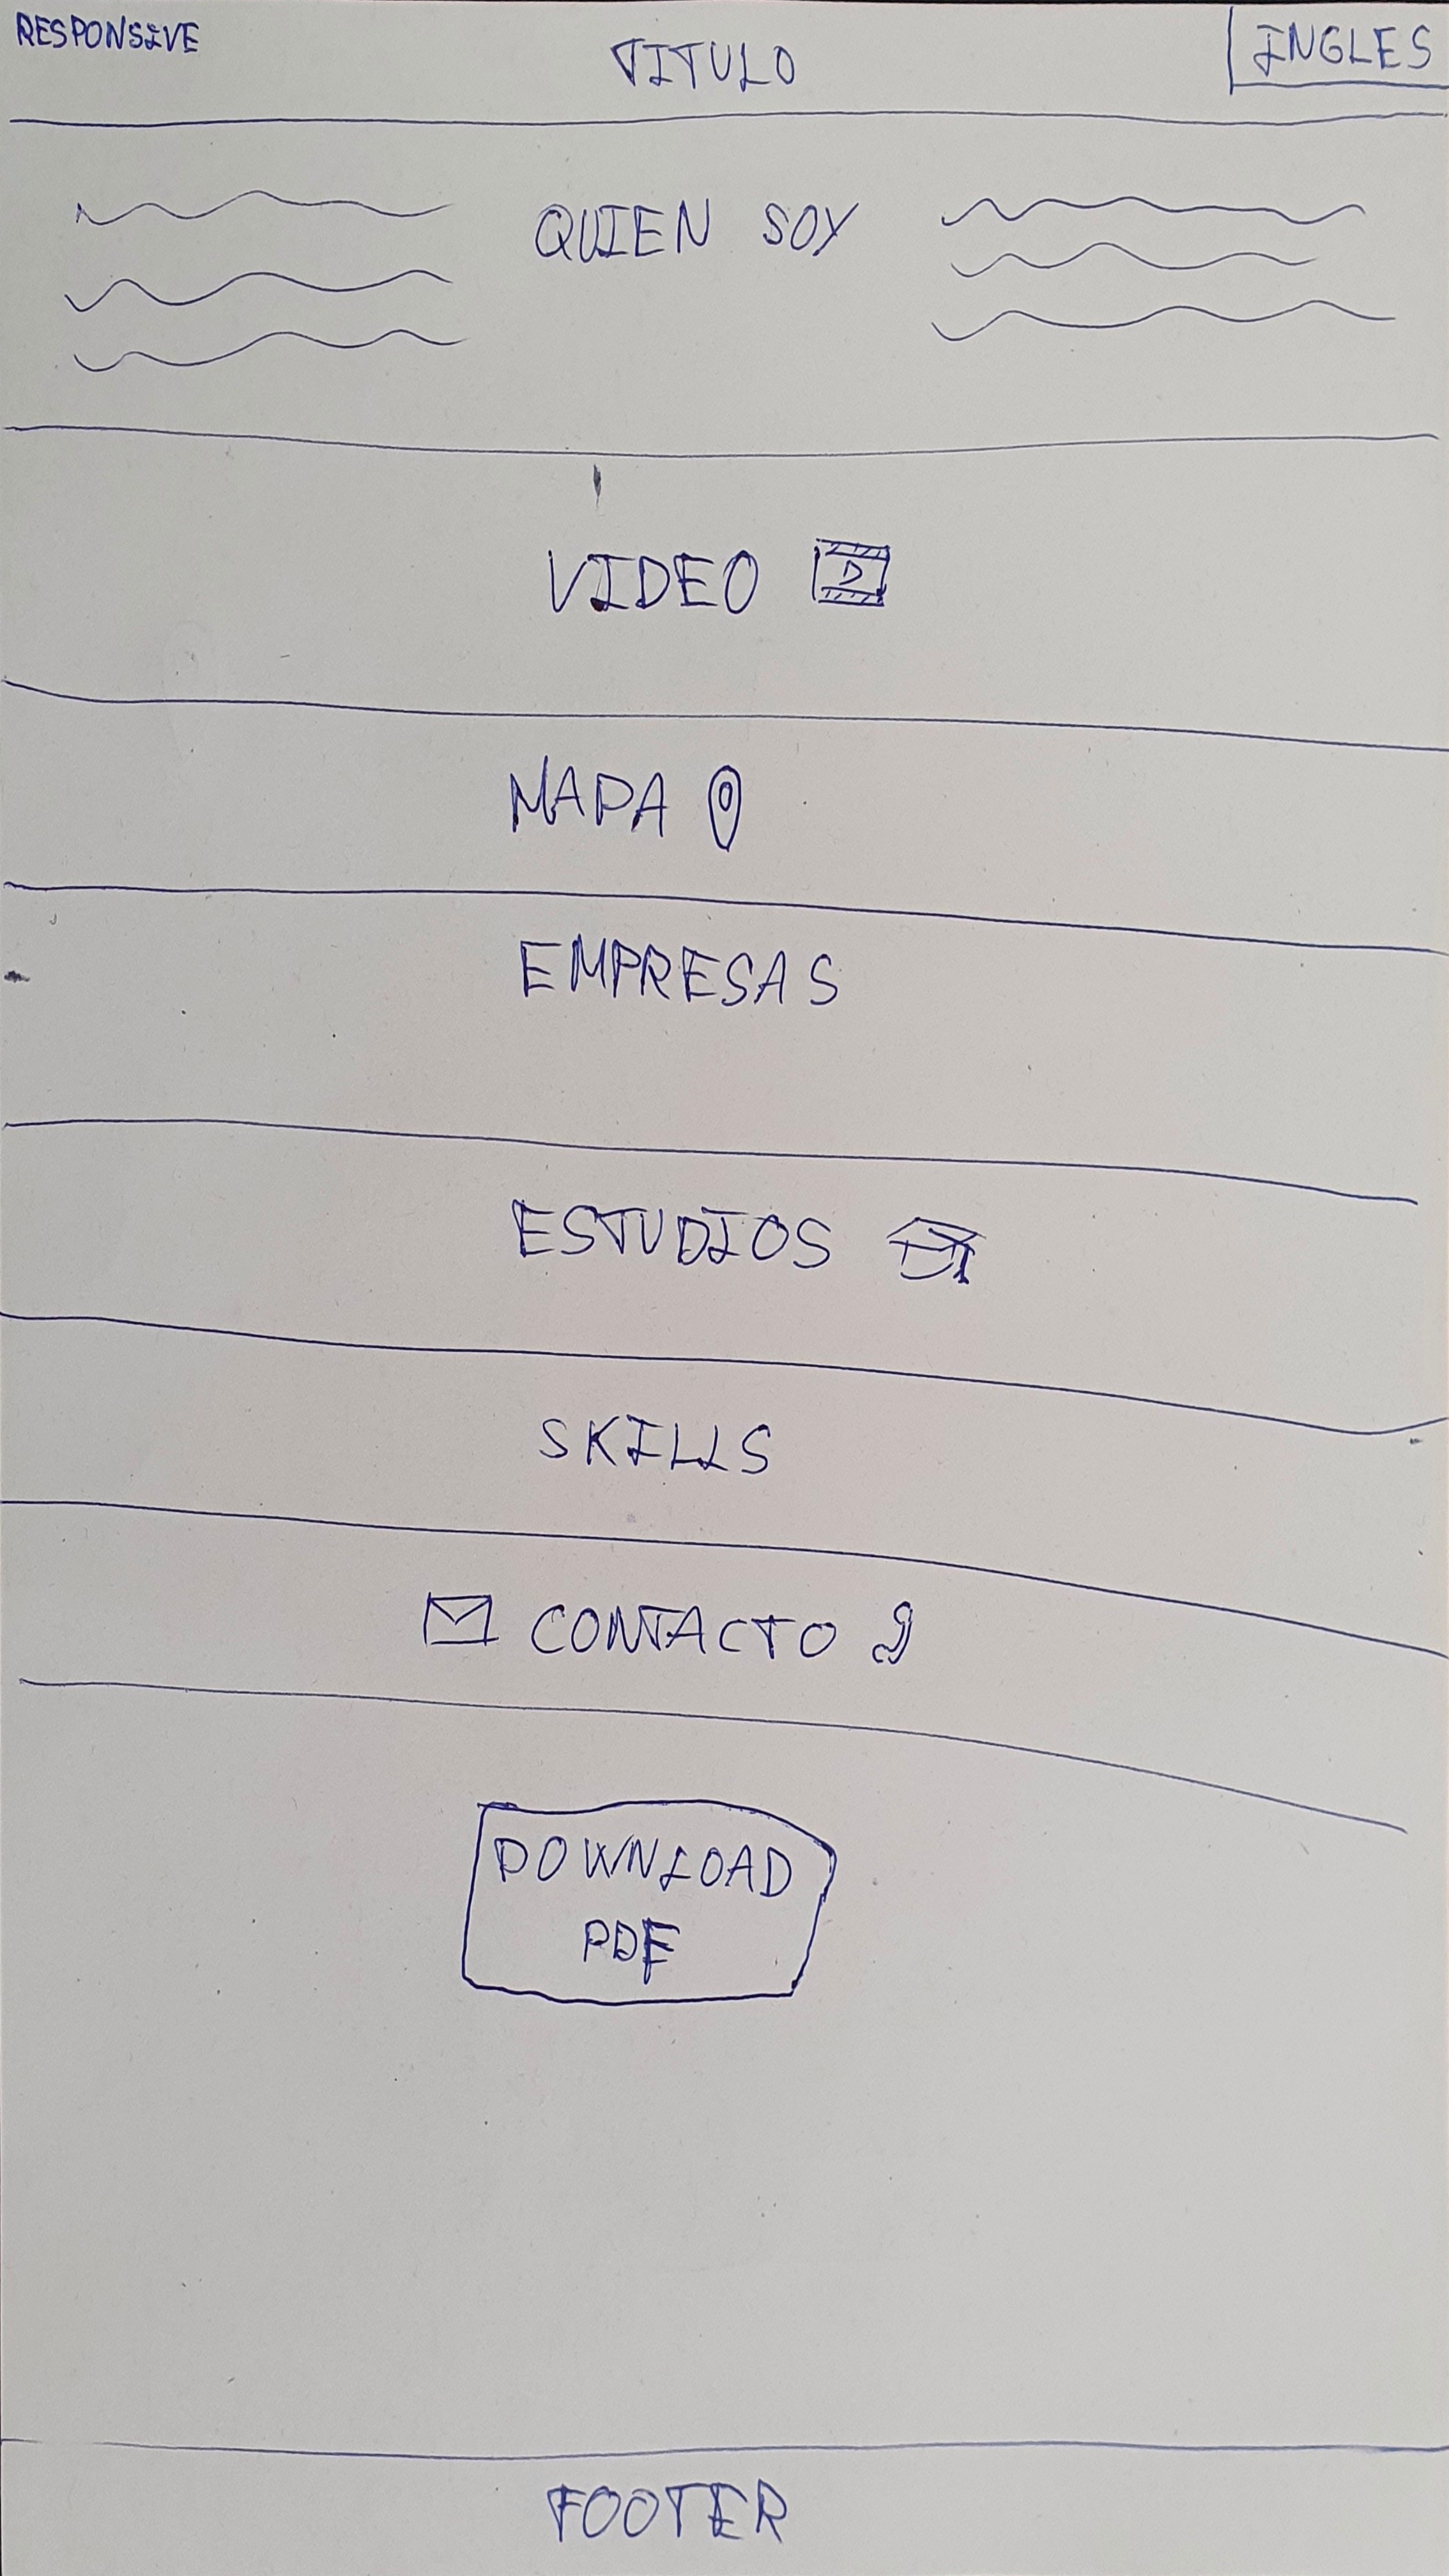 RESPONSIVE
TITULO
INGLES
QUIEN SOY
VIDEO
MAPA
EMPRESAS
ESTUDIOS
SKILLS
CONTACTO
DOWNLOAD
PDF
FOOTER